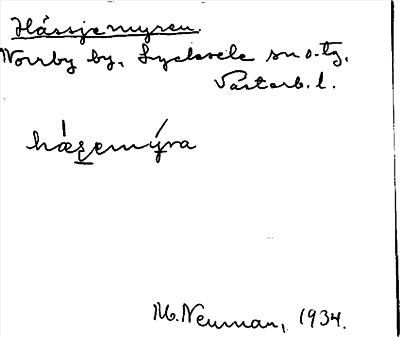 Hässjemyren.
Norrby by, Lycksele sn o. tg,
Västerb. l.
hæʂemýra
M. Neuman, 1934.